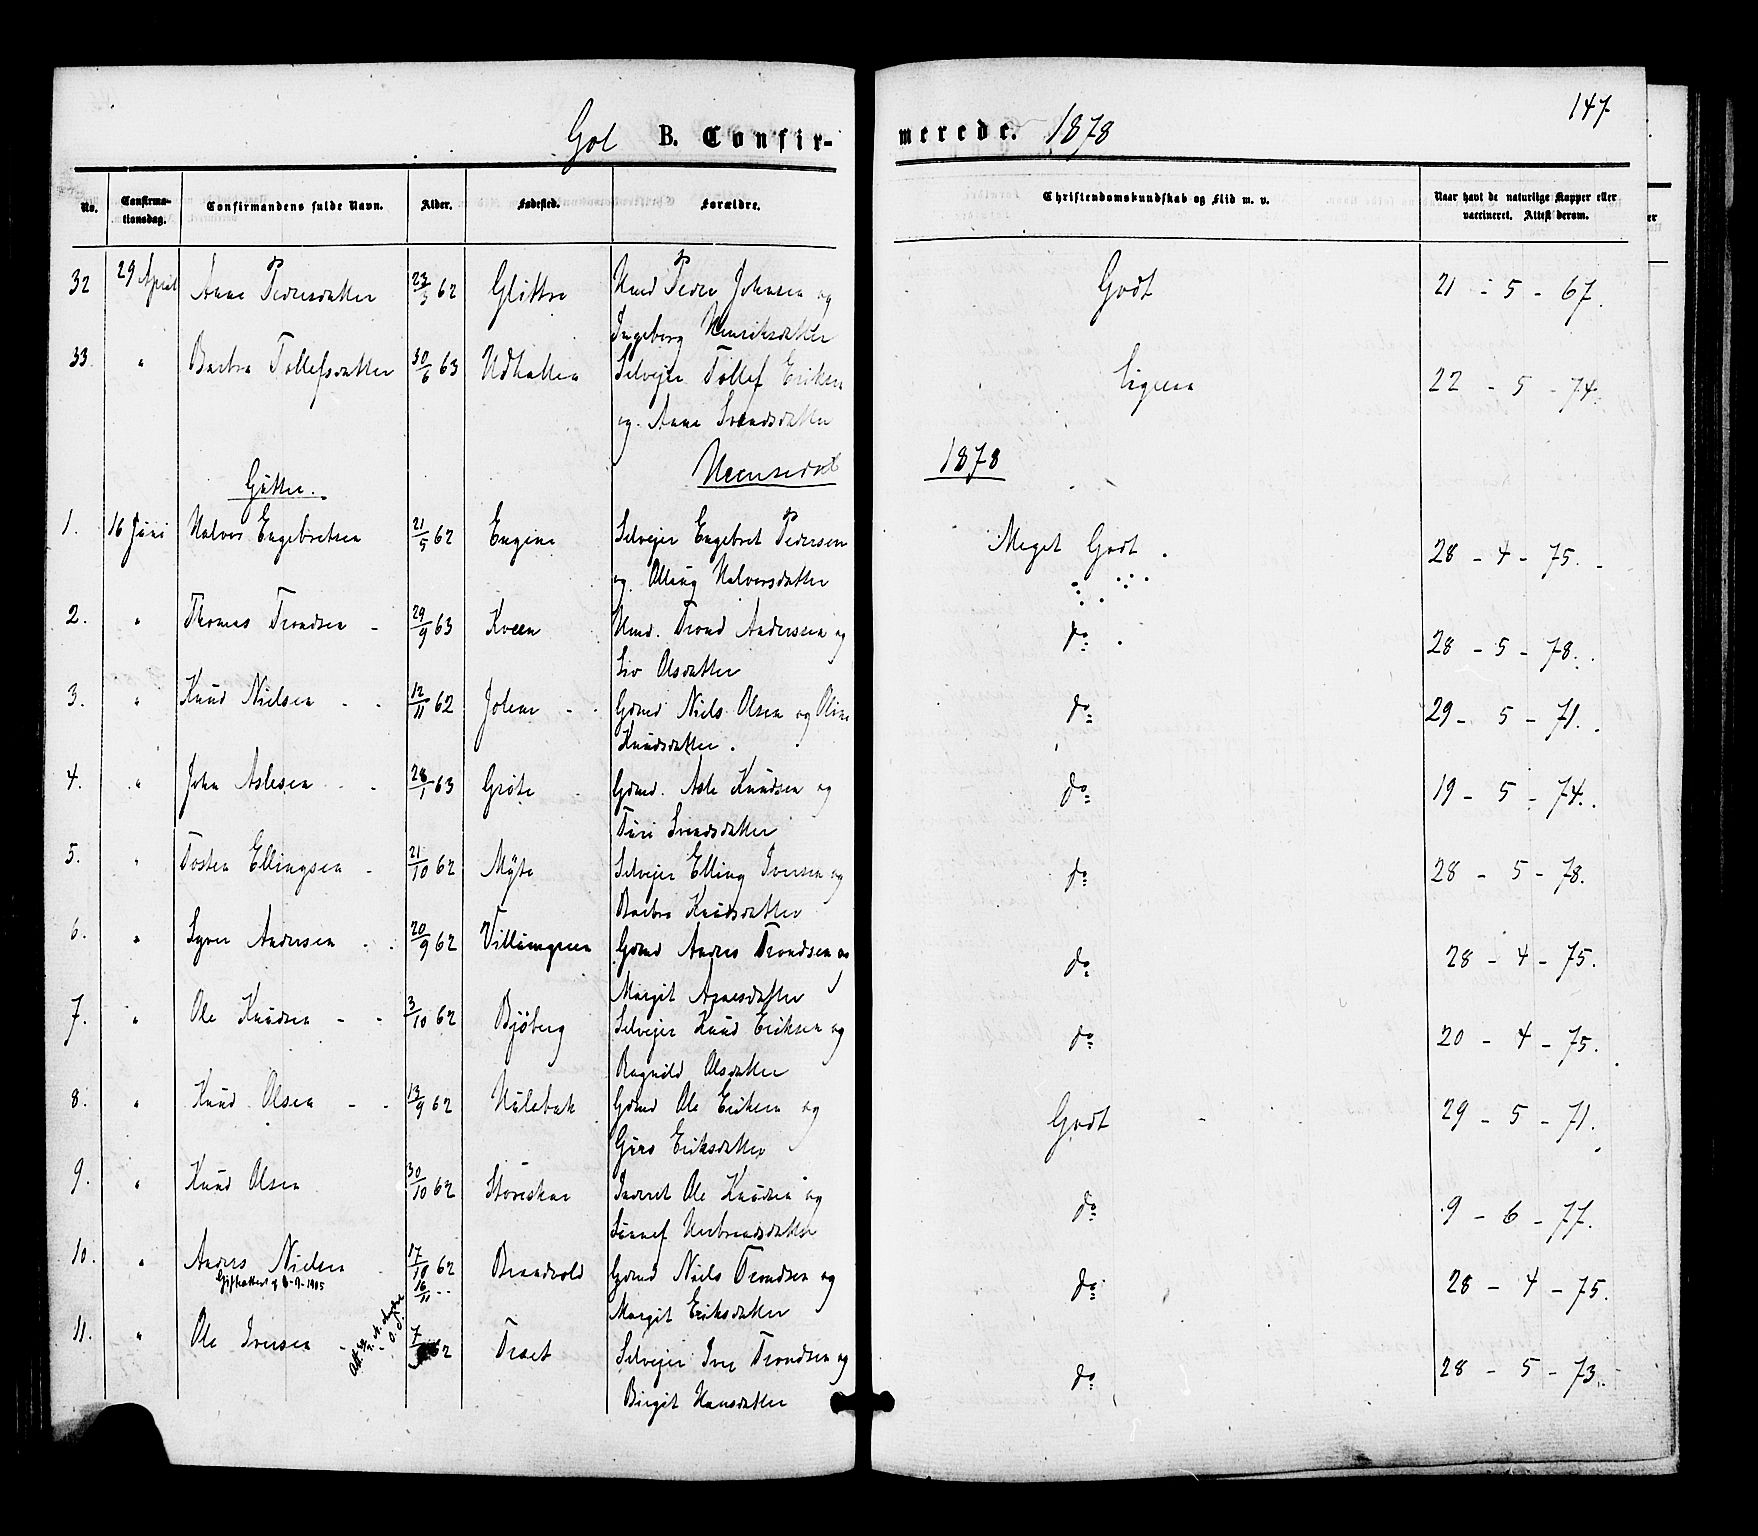 147
Gol B. Confir-
merede. 1878
No. Confirma-tionsdag. Confirmandens fulde Navn. Alder. Fødested. Forældre. Christendomskundskab og Flid m. v. Naar havt de naturlige Kopper eller vaccineret. Attest derom.
32 29 April Anne Pedersdatter 23/3 62 Glittre Hmd Peder Johnsen og Godt 21 - 5 - 67.
Ingeborg Henriksdatter
33 " Barbra Tollefsdatter 30/6 63 Udhallen Selveier Tollef Eriksen Ligesaa 22 - 5 - 74.
og Anne Svendsdatter
Hemsedal 1878
Gutter.
1. 16 Juni Halvor Engebretsen 21/5 62 Engene Selveier Engebret Pedersen Meget Godt. 28 - 4 - 75.
og Olloug Halvorsdatter
2. " Thomas Trondsen 29/9 63 Kveen Hmd. Trond Andersen og do 28 - 5 - 78.
Liv Olsdatter
3. " Knud Nielsen 12/11 62 Jolene Gdmd Niels Olsen og Oline do 29 - 5 - 71.
Knudsdatter.
4. " John Aslesen 28/1 63 Grøte Gdmd. Asle Knudsen og do 19 - 5 - 74.
Turi Svendsdatter
5. " Tosten Ellingsen 21/10 62 Myte Selveier Elling Iversen og do 28 - 5 - 78.
Barbra Knudsdatter
6. " Syver Andersen 20/9 62 Villumgreen Gdmd Anders Trondsen og do 28 - 4 - 75.
Margit Agnesdatter
7. " Ole Knudsen 3/10 62 Bjøberg Selveier Knud Eriksen og do 20 - 4 - 75.
Ragnild Olsdatter
8. " Knud Olsen 13/9 62 Hulebak Gdmd Ole Eriksen og Godt 29 - 5 - 71.
Guro Eriksdatter
9. " Knud Olsen 30/10 62 Storeskar Inderst Ole Knudsen og do 9 - 6 - 77.
Sønnef Herbrandsdatter
10. " Anders Nielsen 17/10 62 Brandvold Gdmd Niels Trondsen og do 28 - 4 - 75.
16/11
Margit Eriksdatter
11. " Ole Iversen 7/ 62 Traet Selveier Iver Trondsen og do 28 - 5 - 73.
Birgit Hansdatter